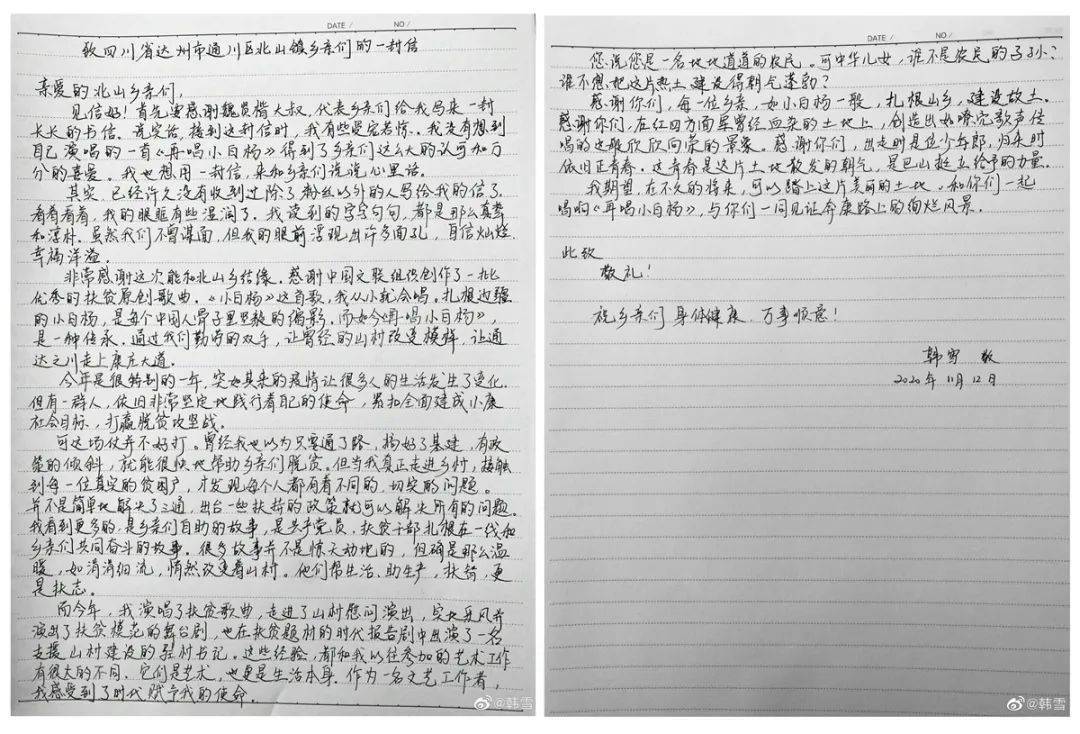 DATE / NO /
致四川省达州市通川区北山镇乡亲们的一封信
亲爱的北山乡亲们,
见信好!首先要感谢魏员楷大叔,代表乡亲们给我写来一封
长长的书信。说实话,接到这封信时,我有些受宠若惊。我没有想到
自己演唱的一首《再唱小白杨》得到了乡亲们这么大的认可和万
分的喜爱。我也想用一封信,来和乡亲们说说心里话。
其实,已经许久没有收到过除了粉丝以外的人写给我的信了。
看着看着,我的眼眶有些湿润了。我读到的字字句句,都是那么真挚
和淳朴。虽然我们不曾谋面,但我的眼前浮现出许多面孔,自信灿烂,
幸福洋溢。
非常感谢这次能和北山乡结缘。感谢中国文联组织创作了一批
优秀的扶贫原创歌曲。《小白杨》这首歌,我从小就会唱。扎根边疆
的小白杨,是每个中国人骨子里坚毅的缩影。而如今《再唱小白杨》,
是一种传承。通过我们勤劳的双手,让曾经的山村改变模样,让通
达之川走上康庄大道。
今年是很特别的一年,突如其来的疫情让很多人的生活发生了变化。
但有一群人,依旧非常坚定地践行着自己的使命,紧扣全面建成小康
社会目标,打赢脱贫攻坚战。
可这场仗并不好打。曾经我也以为只要通了路,搞好了基建,有政
策的倾斜,就能很快地帮助乡亲们脱贫。但当我真正走进乡村,接触
到每一位真实的贫困户,才发现每个人都有着不同的,切实的问题。
并不是简单地解决了三通,出台一些扶持的政策就可以解决所有的问题。
我看到更多的,是乡亲们自助的故事,是共产党员,扶贫干部扎根在一线和
乡亲们共同奋斗的故事。很多故事并不是惊天动地的,但确是那么温
暖,如涓涓细流,悄然改变着山村。他们帮生活、助生产,扶智,更
是扶志。
而今年,我演唱了扶贫歌曲,走进了山村慰问演出,实地采风并
演出了扶贫模范的舞台剧,也在扶贫题材的时代报告剧中出演了一名
支援山村建设的驻村书记。这些经验,都和我以往参加的艺术工作
有很大的不同。它们是艺术,也更是生活本身。作为一名文艺工作者,
我感受到了时代赋予我的使命。
@韩雪
DATE / NO /
您说您是一名地地道道的农民。可中华儿女,谁不是农民的子孙?
谁不想把这片热土建设得朝气蓬勃?
感谢你们,每一位乡亲,如小白杨一般,扎根山乡,建设故土。
感谢你们,在红四方面军曾经血染的土地上,创造出如嘹亮歌声传
唱的这般欣欣向荣的景象。感谢你们,出走时是位少年郎,归来时
依旧正青春。这青春是这片土地散发的朝气,是巴山挺立给予的力量。
我期望,在不久的将来,可以踏上这片美丽的土地,和你们一起
唱响《再唱小白杨》,与你们一同见证奔康路上的绚烂风景。
此致
敬礼!
祝乡亲们 身体健康 万事顺意!
韩雪 敬
2020年11月12日
@韩雪